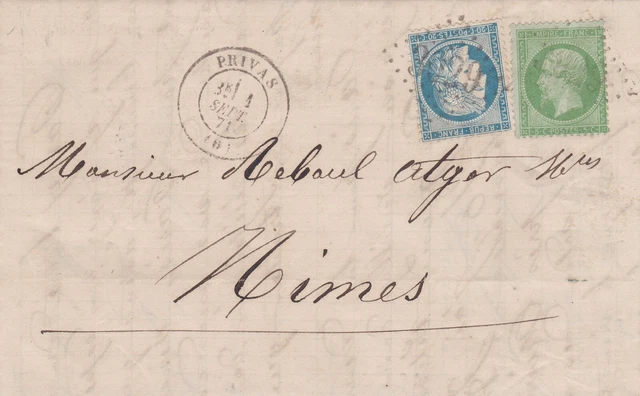 PRIVAS
3E/ 1
SEPT.
71
(6)
REPUB. FRANC.
EMPIRE FRANC.
5 C POSTES 5 C
Monsieur Reboul Atger
Nimes